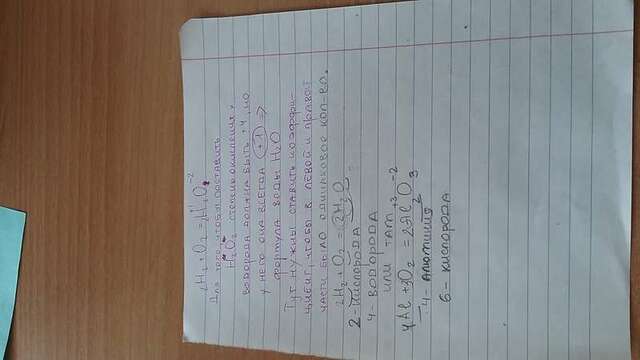 2H₂+O₂=2H₂⁺¹O⁻²
Для того, чтобы поставить
H₂O₂ степень окисления у
водорода должна быть +4, но
у него она всегда +1 ⇒
формула воды H₂O
Тут нужны ставить коэффи-
циент, чтобы в левой и правой
части было одинаковое кол-во.
2H₂+O₂=2H₂O
2-кислорода
4-водорода
или там
4Al+3O₂=2Al₂⁺³O₃⁻²
4-алюминия
6-кислорода